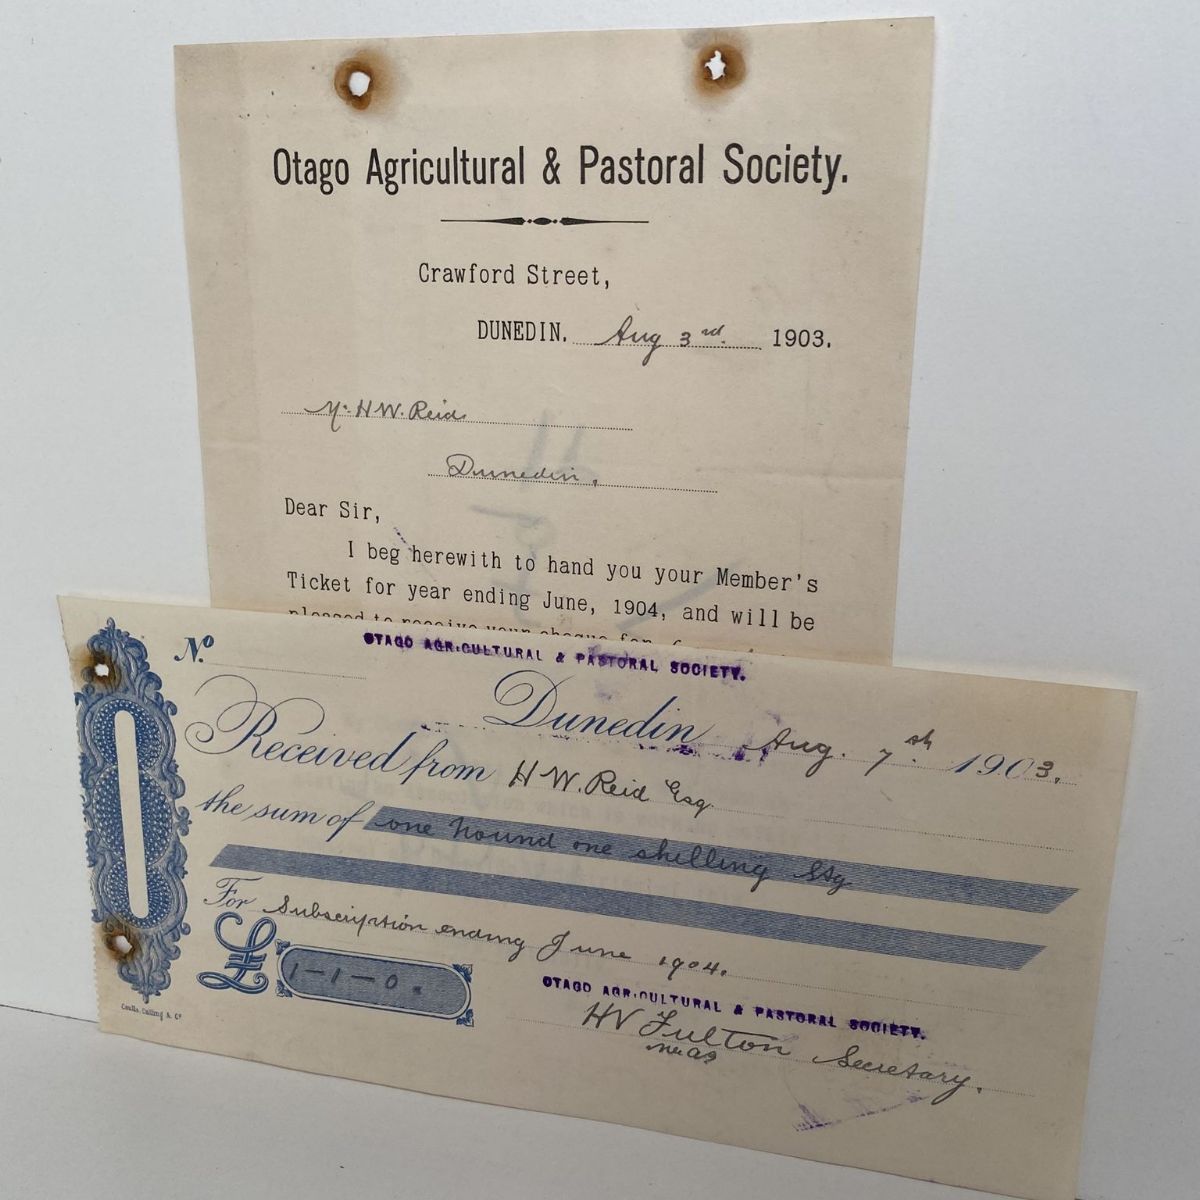 Otago Agricultural & Pastoral Society.
Crawford Street,
DUNEDIN. Aug 3rd. 1903.
Mr. H W. Reid
Dunedin.
Dear Sir,
I beg herewith to hand you your Member's
Ticket for year ending June, 1904, and will be
pleased to receive your cheque for
OTAGO AGRICULTURAL & PASTORAL SOCIETY.
No.
Dunedin Aug. 7th. 1903.
Received from H W. Reid Esq
the sum of one pound one shilling Stg
For Subscription ending June 1904.
£ 1-1-0.
OTAGO AGRICULTURAL & PASTORAL SOCIETY.
HV Fulton Secretary.
Coulls, Culling & Co